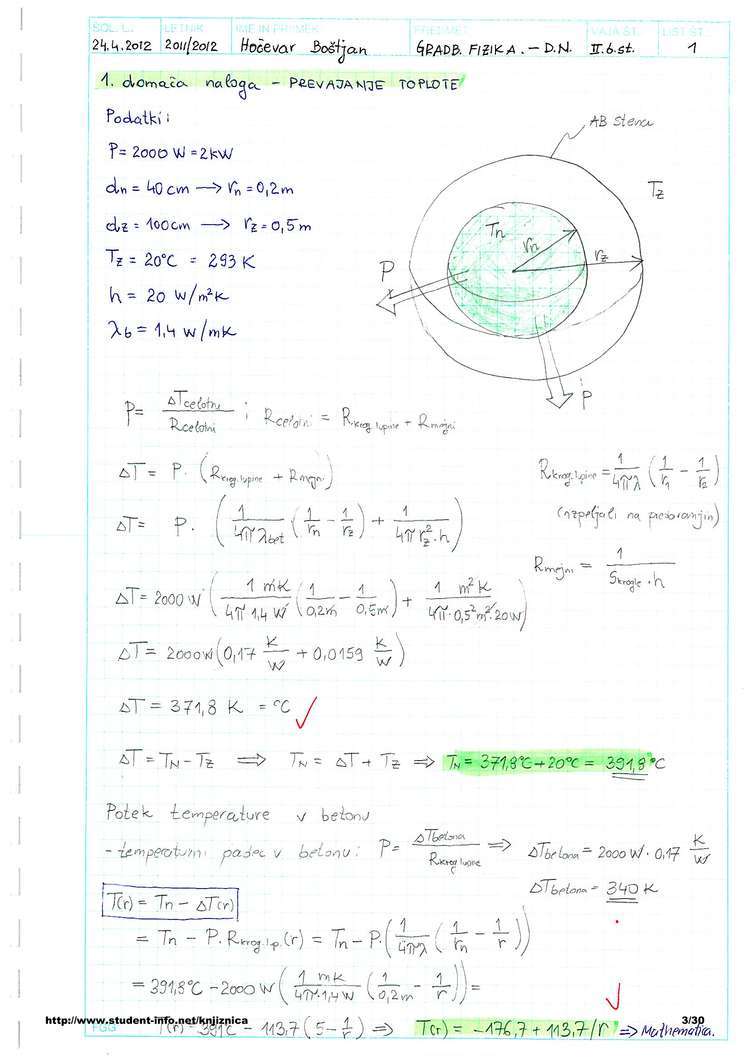 ŠOL. L.
LETNIK
IME IN PRIIMEK
PREDMET
VAJA ŠT.
LIST ŠT.
24.4.2012
2011/2012
Hočevar Boštjan
GRADB. FIZIKA. – D.N.
II.b.st.
1
1. domača naloga – PREVAJANJE TOPLOTE
Podatki:
P = 2000 W = 2kW
dn = 40 cm → rn = 0,2 m
dz = 100 cm → rz = 0,5 m
Tz = 20°C = 293 K
h = 20 W/m²K
λb = 1,4 W/mK
AB stena
Tz
Tn
rn
rz
P
P
P = ΔTcelotni / Rcelotni ; Rcelotni = Rkrog.lupine + Rmejni
ΔT = P · (Rkrog.lupine + Rmejni)
Rkrog.lupine = 1/4πλ (1/r1 - 1/r2)
(izpeljali na predavanjih)
ΔT = P · (1/4πλbet (1/rn - 1/rz) + 1/4πrz²·h)
Rmejni = 1/Skrogle·h
ΔT = 2000 W (1 mK/4π 1,4 W (1/0,2m - 1/0,5m) + 1 m²K/4π·0,5²m²·20W)
ΔT = 2000W (0,17 K/W + 0,0159 K/W)
ΔT = 371,8 K = °C ✓
ΔT = TN - TZ ⇒ TN = ΔT + TZ ⇒ TN = 371,8°C + 20°C = 391,8°C
Potek temperature v betonu
- temperaturni padec v betonu: P = ΔTbetona / Rkrog.lupine ⇒ ΔTbetona = 2000 W · 0,17 K/W
ΔTbetona = 340 K
T(r) = Tn - ΔT(r)
= Tn - P·Rkrog.lup.(r) = Tn - P·(1/4πλ (1/rn - 1/r))
= 391,8°C - 2000 W (1 mK/4π·1,4W (1/0,2m - 1/r)) =
T(r) = 391°C - 113,7 (5 - 1/r) ⇒ T(r) = -176,7 + 113,7/r ✓ ⇒ Mathematica.
http://www.student-info.net/knjiznica
3/30
FGG